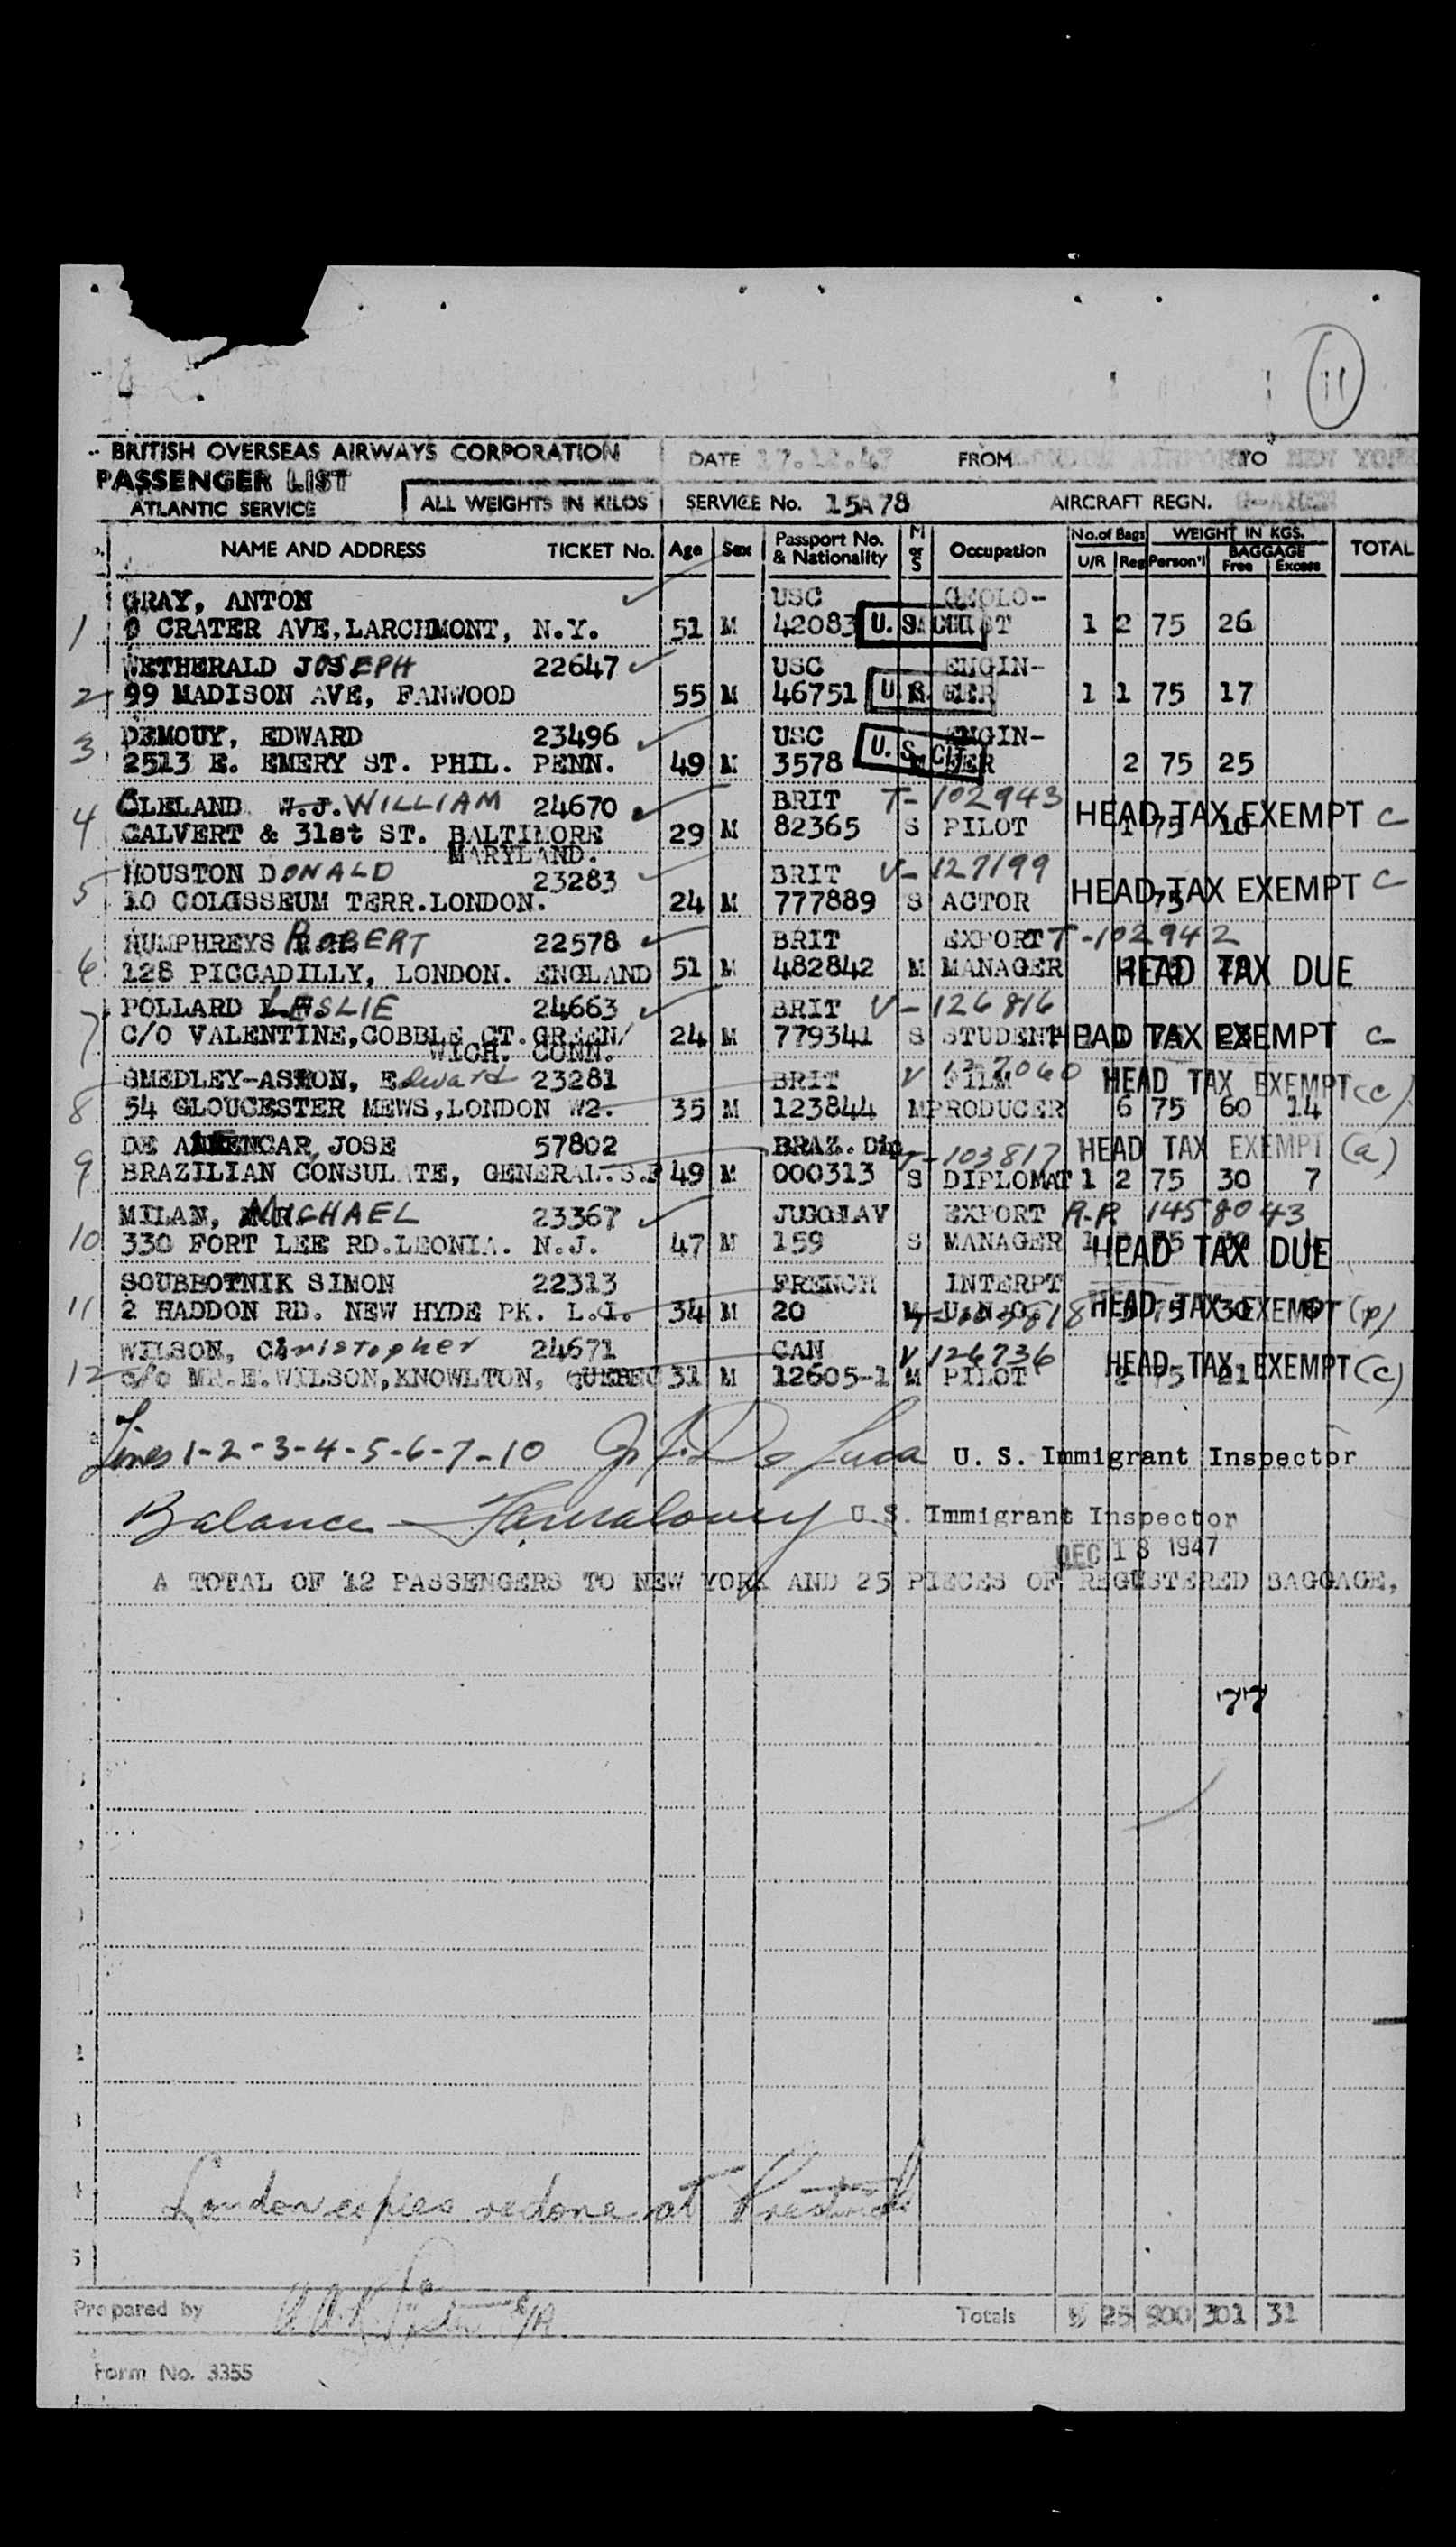 11
BRITISH OVERSEAS AIRWAYS CORPORATION
PASSENGER LIST
ATLANTIC SERVICE
ALL WEIGHTS IN KILOS
DATE 17.12.47 FROM LONDON AIRPORT TO NEW YORK
SERVICE No. 15A78 AIRCRAFT REGN.
NAME AND ADDRESS TICKET No. Age Sex Passport No. & Nationality M or S Occupation No. of Bags U/R Reg WEIGHT IN KGS. Person'l BAGGAGE Free Excess TOTAL
GRAY, ANTON USC GEOLO-
1 CRATER AVE, LARCHMONT, N.Y. 51 M 42083 U. S. CIT 1 2 75 26
WETHERALD JOSEPH 22647 USC ENGIN-
2 99 MADISON AVE, FANWOOD 55 M 46751 U. S. 1 1 75 17
DEMOUY, EDWARD 23496 USC ENGIN-
3 2513 E. EMERY ST. PHIL. PENN. 49 M 3578 U. S. CIT 2 75 25
4 CLELAND W.J. WILLIAM 24670 BRIT T-102943
CALVERT & 31st ST. BALTIMORE 29 M 82365 S PILOT HEAD TAX EXEMPT C
MARYLAND.
HOUSTON DONALD 23283 BRIT V-127199
5 10 COLOSSEUM TERR.LONDON. 24 M 777889 S ACTOR 75 HEAD TAX EXEMPT C
HUMPHREYS ROBERT 22578 BRIT EXPORT T-102942
6 128 PICCADILLY, LONDON. ENGLAND 51 M 482842 M MANAGER HEAD TAX DUE
POLLARD LESLIE 24663 BRIT V-126816
7 C/O VALENTINE, COBBLE CT. GREEN/ 24 M 779341 S STUDENT HEAD TAX EXEMPT C
WICH. CONN.
SMEDLEY-ASTON, Edward 23281 BRIT V FILM HEAD TAX EXEMPT (c)
8 54 GLOUCESTER MEWS, LONDON W2. 35 M 123844 M PRODUCER 6 75 60 14
DE ALENCAR, JOSE 57802 BRAZ. Dip T-103817 HEAD TAX EXEMPT (a)
9 BRAZILIAN CONSULATE, GENERAL. S.P 49 M 000313 S DIPLOMAT 1 2 75 30 7
MILAN, MICHAEL 23367 JUGOSLAV EXPORT R.P. 1458043
10 330 FORT LEE RD. LEONIA. N.J. 47 M 159 S MANAGER 1 HEAD TAX DUE
SOUBBOTNIK SIMON 22313 FRENCH INTERPT
11 2 HADDON RD. NEW HYDE PK. L.I. 34 M 20 M U.N.O. HEAD TAX EXEMPT (p)
WILSON, Christopher 24671 CAN V 126736
12 c/o MR.E.WILSON, KNOWLTON, QUEBEC 31 M 12605-1 M PILOT 75 21 HEAD TAX EXEMPT (c)
Lines 1-2-3-4-5-6-7-10 De Luca U. S. Immigrant Inspector
Balance U.S. Immigrant Inspector
DEC 18 1947
A TOTAL OF 12 PASSENGERS TO NEW YORK AND 25 PIECES OF REGISTERED BAGGAGE,
77
London copies redone at Prestwick
Prepared by Totals 5 25 900 301 31
Form No. 3355